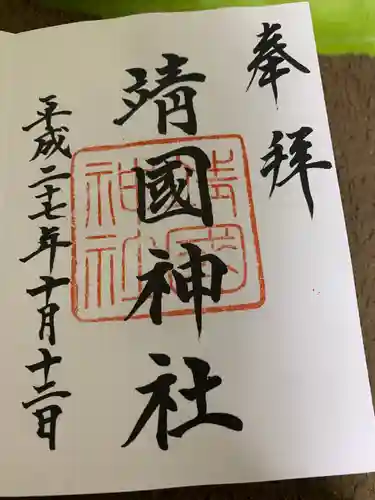 奉拝
靖國神社
靖国
神社
平成二十七年十月十二日